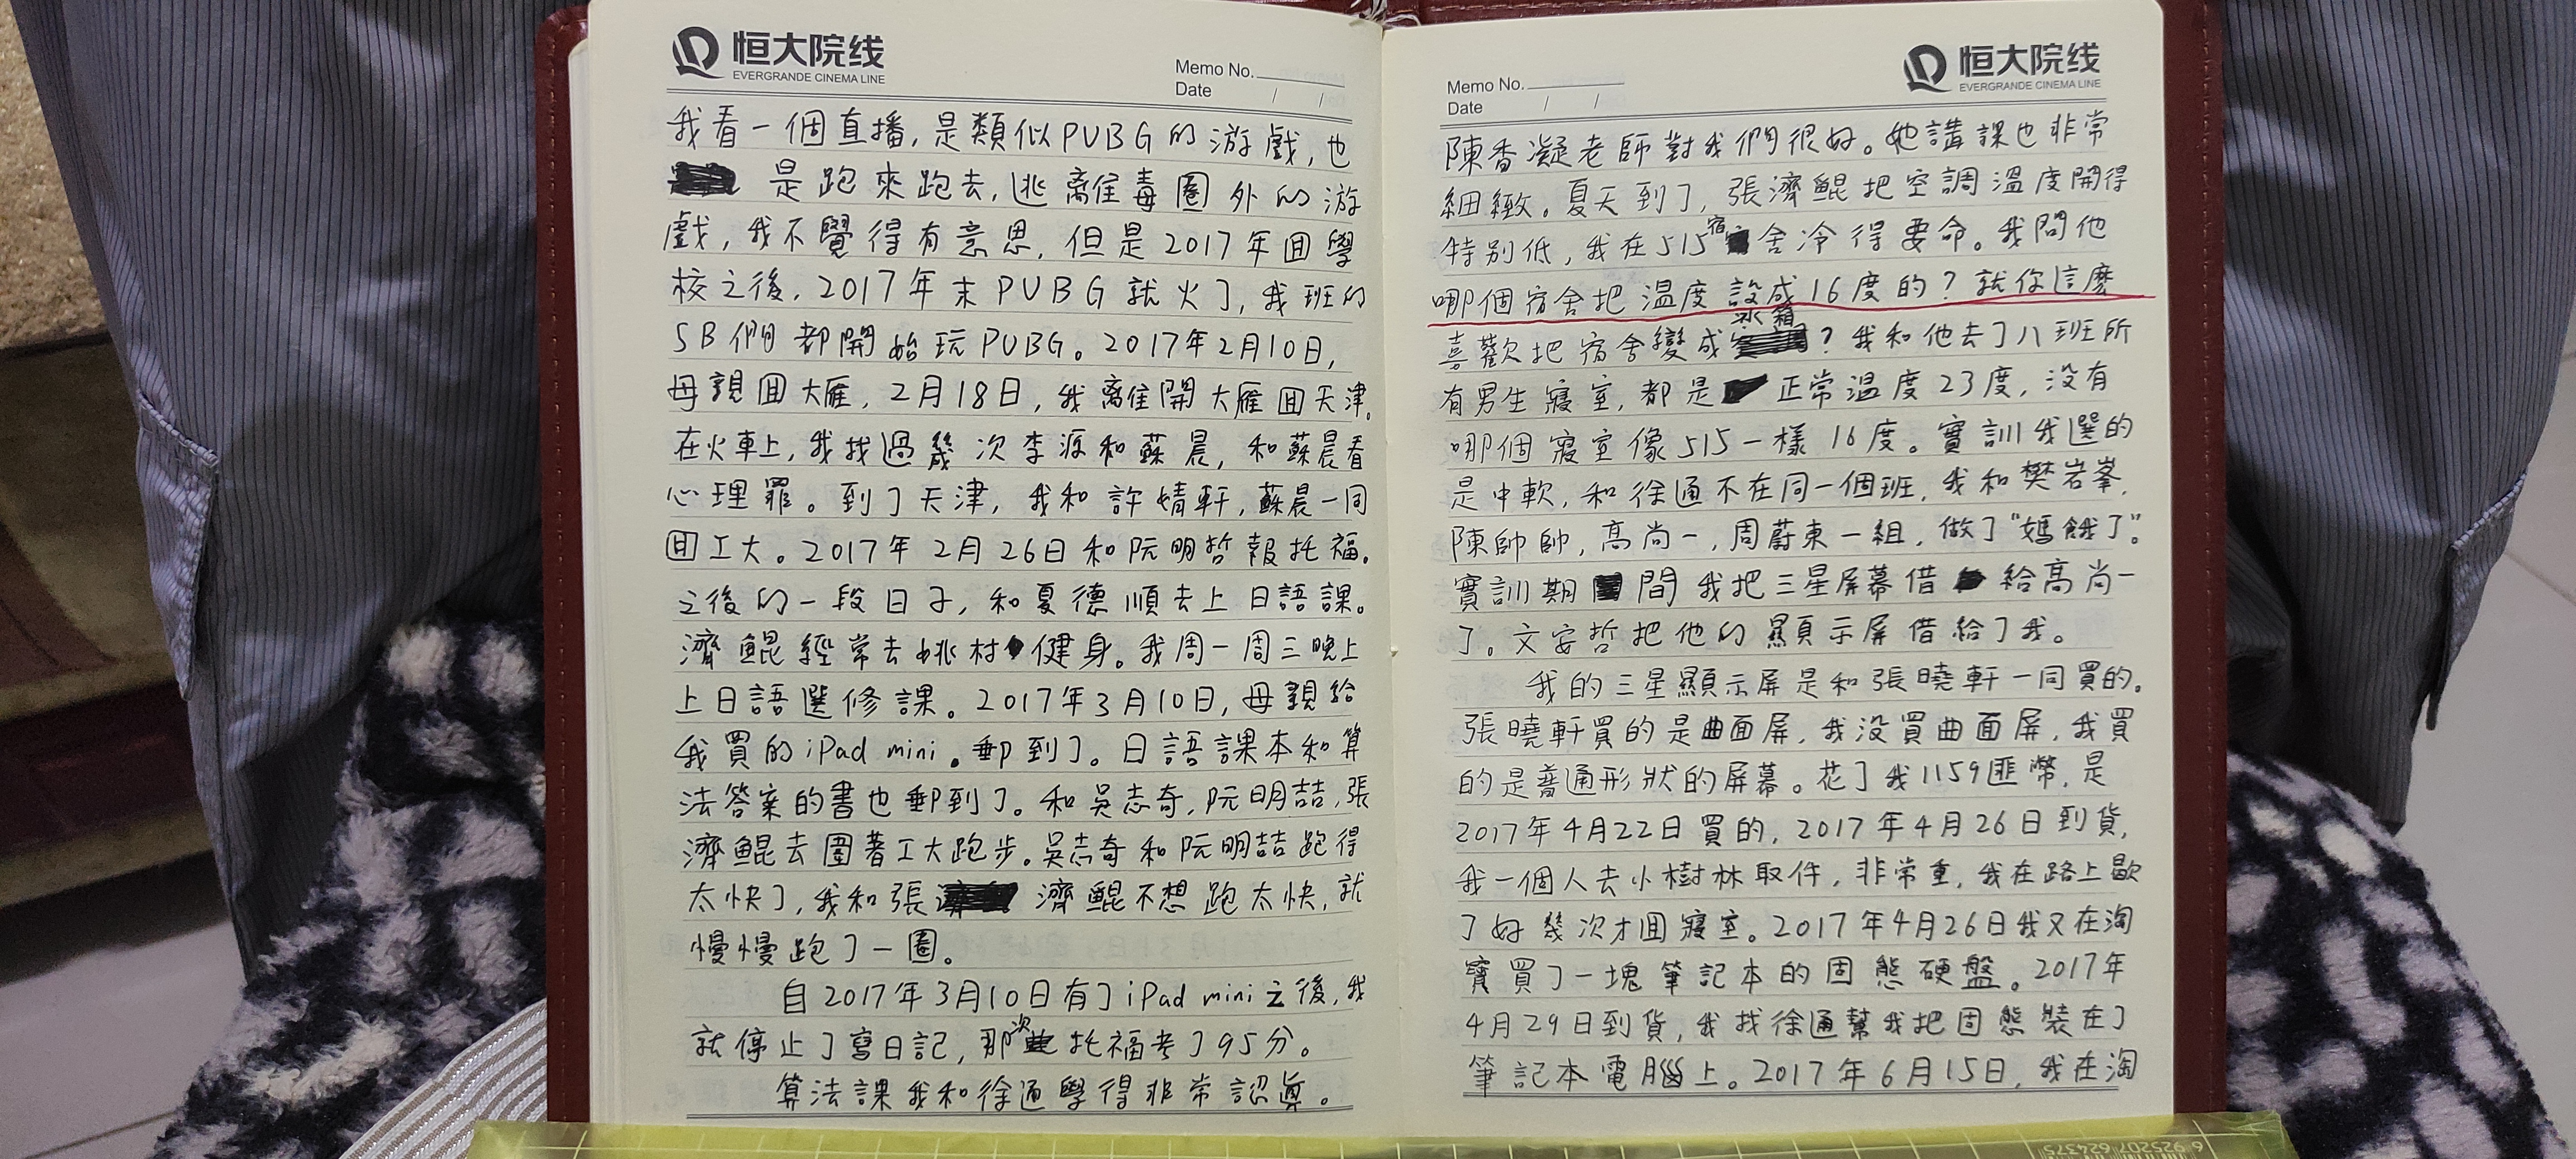 恒大院线
EVERGRANDE CINEMA LINE
Memo No.
Date / /
我看一個直播,是類似PUBG的游戲,也
是跑來跑去,逃離毒圈外的游
戲,我不覺得有意思,但是2017年回學
校之後,2017年末PUBG就火了,我班的
SB們都開始玩PUBG。2017年2月10日,
母親回大雁,2月18日,我離開大雁回天津。
在火車上,我找過幾次李源和蘇晨,和蘇晨看
心理罪。到了天津,我和許婧軒,蘇晨一同
回工大。2017年2月26日和阮明哲報托福。
之後的一段日子,和夏德順去上日語課。
濟鯤經常去姚村健身。我周一周三晚上
上日語選修課。2017年3月10日,母親給
我買的iPad mini。郵到了。日語課本和算
法答案的書也郵到了。和吳志奇,阮明喆,張
濟鯤去圍著工大跑步。吳志奇和阮明喆跑得
太快了,我和張濟鯤不想跑太快,就
慢慢跑了一圈。
自2017年3月10日有了iPad mini之後,我
就停止了寫日記,那次托福考了95分。
算法課我和徐通學得非常認真。
恒大院线
EVERGRANDE CINEMA LINE
Memo No.
Date / /
陳香凝老師對我們很好。她講課也非常
細緻。夏天到了,張濟鯤把空調溫度開得
特別低,我在515宿舍冷得要命。我問他
哪個宿舍把溫度設成16度的?就你這麼
喜歡把宿舍變成冰箱?我和他去了八班所
有男生寢室,都是正常溫度23度,沒有
哪個寢室像515一樣16度。實訓我選的
是中軟,和徐通不在同一個班,我和樊岩峯,
陳帥帥,高尚一,周蔚東一組,做了"媽餓了"。
實訓期間我把三星屏幕借給高尚一
了。文安哲把他的顯示屏借給了我。
我的三星顯示屏是和張曉軒一同買的。
張曉軒買的是曲面屏,我沒買曲面屏,我買
的是普通形狀的屏幕。花了我1159匪幣,是
2017年4月22日買的,2017年4月26日到貨,
我一個人去小樹林取件,非常重,我在路上歇
了好幾次才回寢室。2017年4月26日我又在淘
寶買了一塊筆記本的固態硬盤。2017年
4月29日到貨,我找徐通幫我把固態裝在了
筆記本電腦上。2017年6月15日,我在淘
6 925207 624375